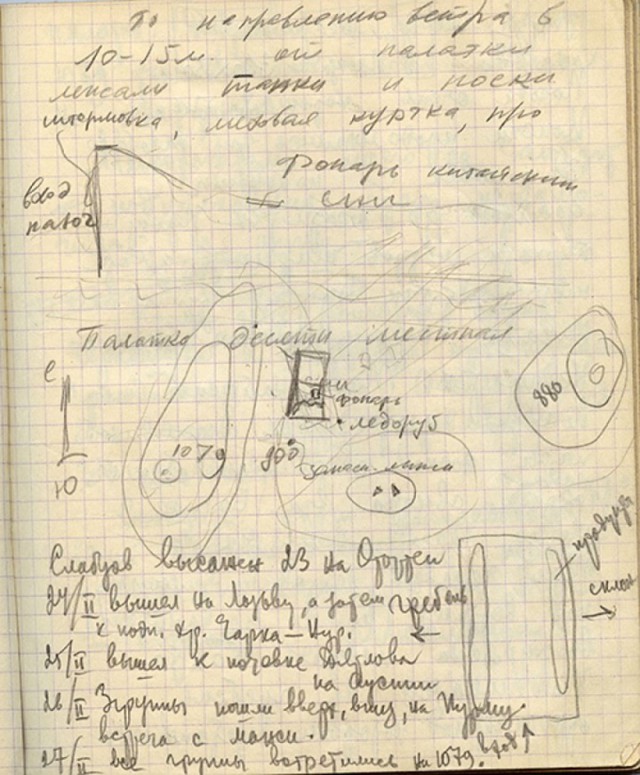 По направлению ветра в
10-15 м. от палатки
лежали тапки и носки
штормовка, меховая куртка, про
Фонарь китайский
вход
на юг
сни
Палатка десяти местная
с
Ю
фонарь
ледоруб
1079
900
880
запасн. лыжи
Слабцов высажен 23 на Отортен
продукты
склон
24/II вышел на Лозьву, а затем гребень
к подн. хр. Чарка-Нур.
25/II вышел к ночевке Дятлова
на Ауспии
26/II 3 группы пошли вверх, вниз, на Пурму.
встреча с манси.
вход
27/II все группы встретились на 1079.